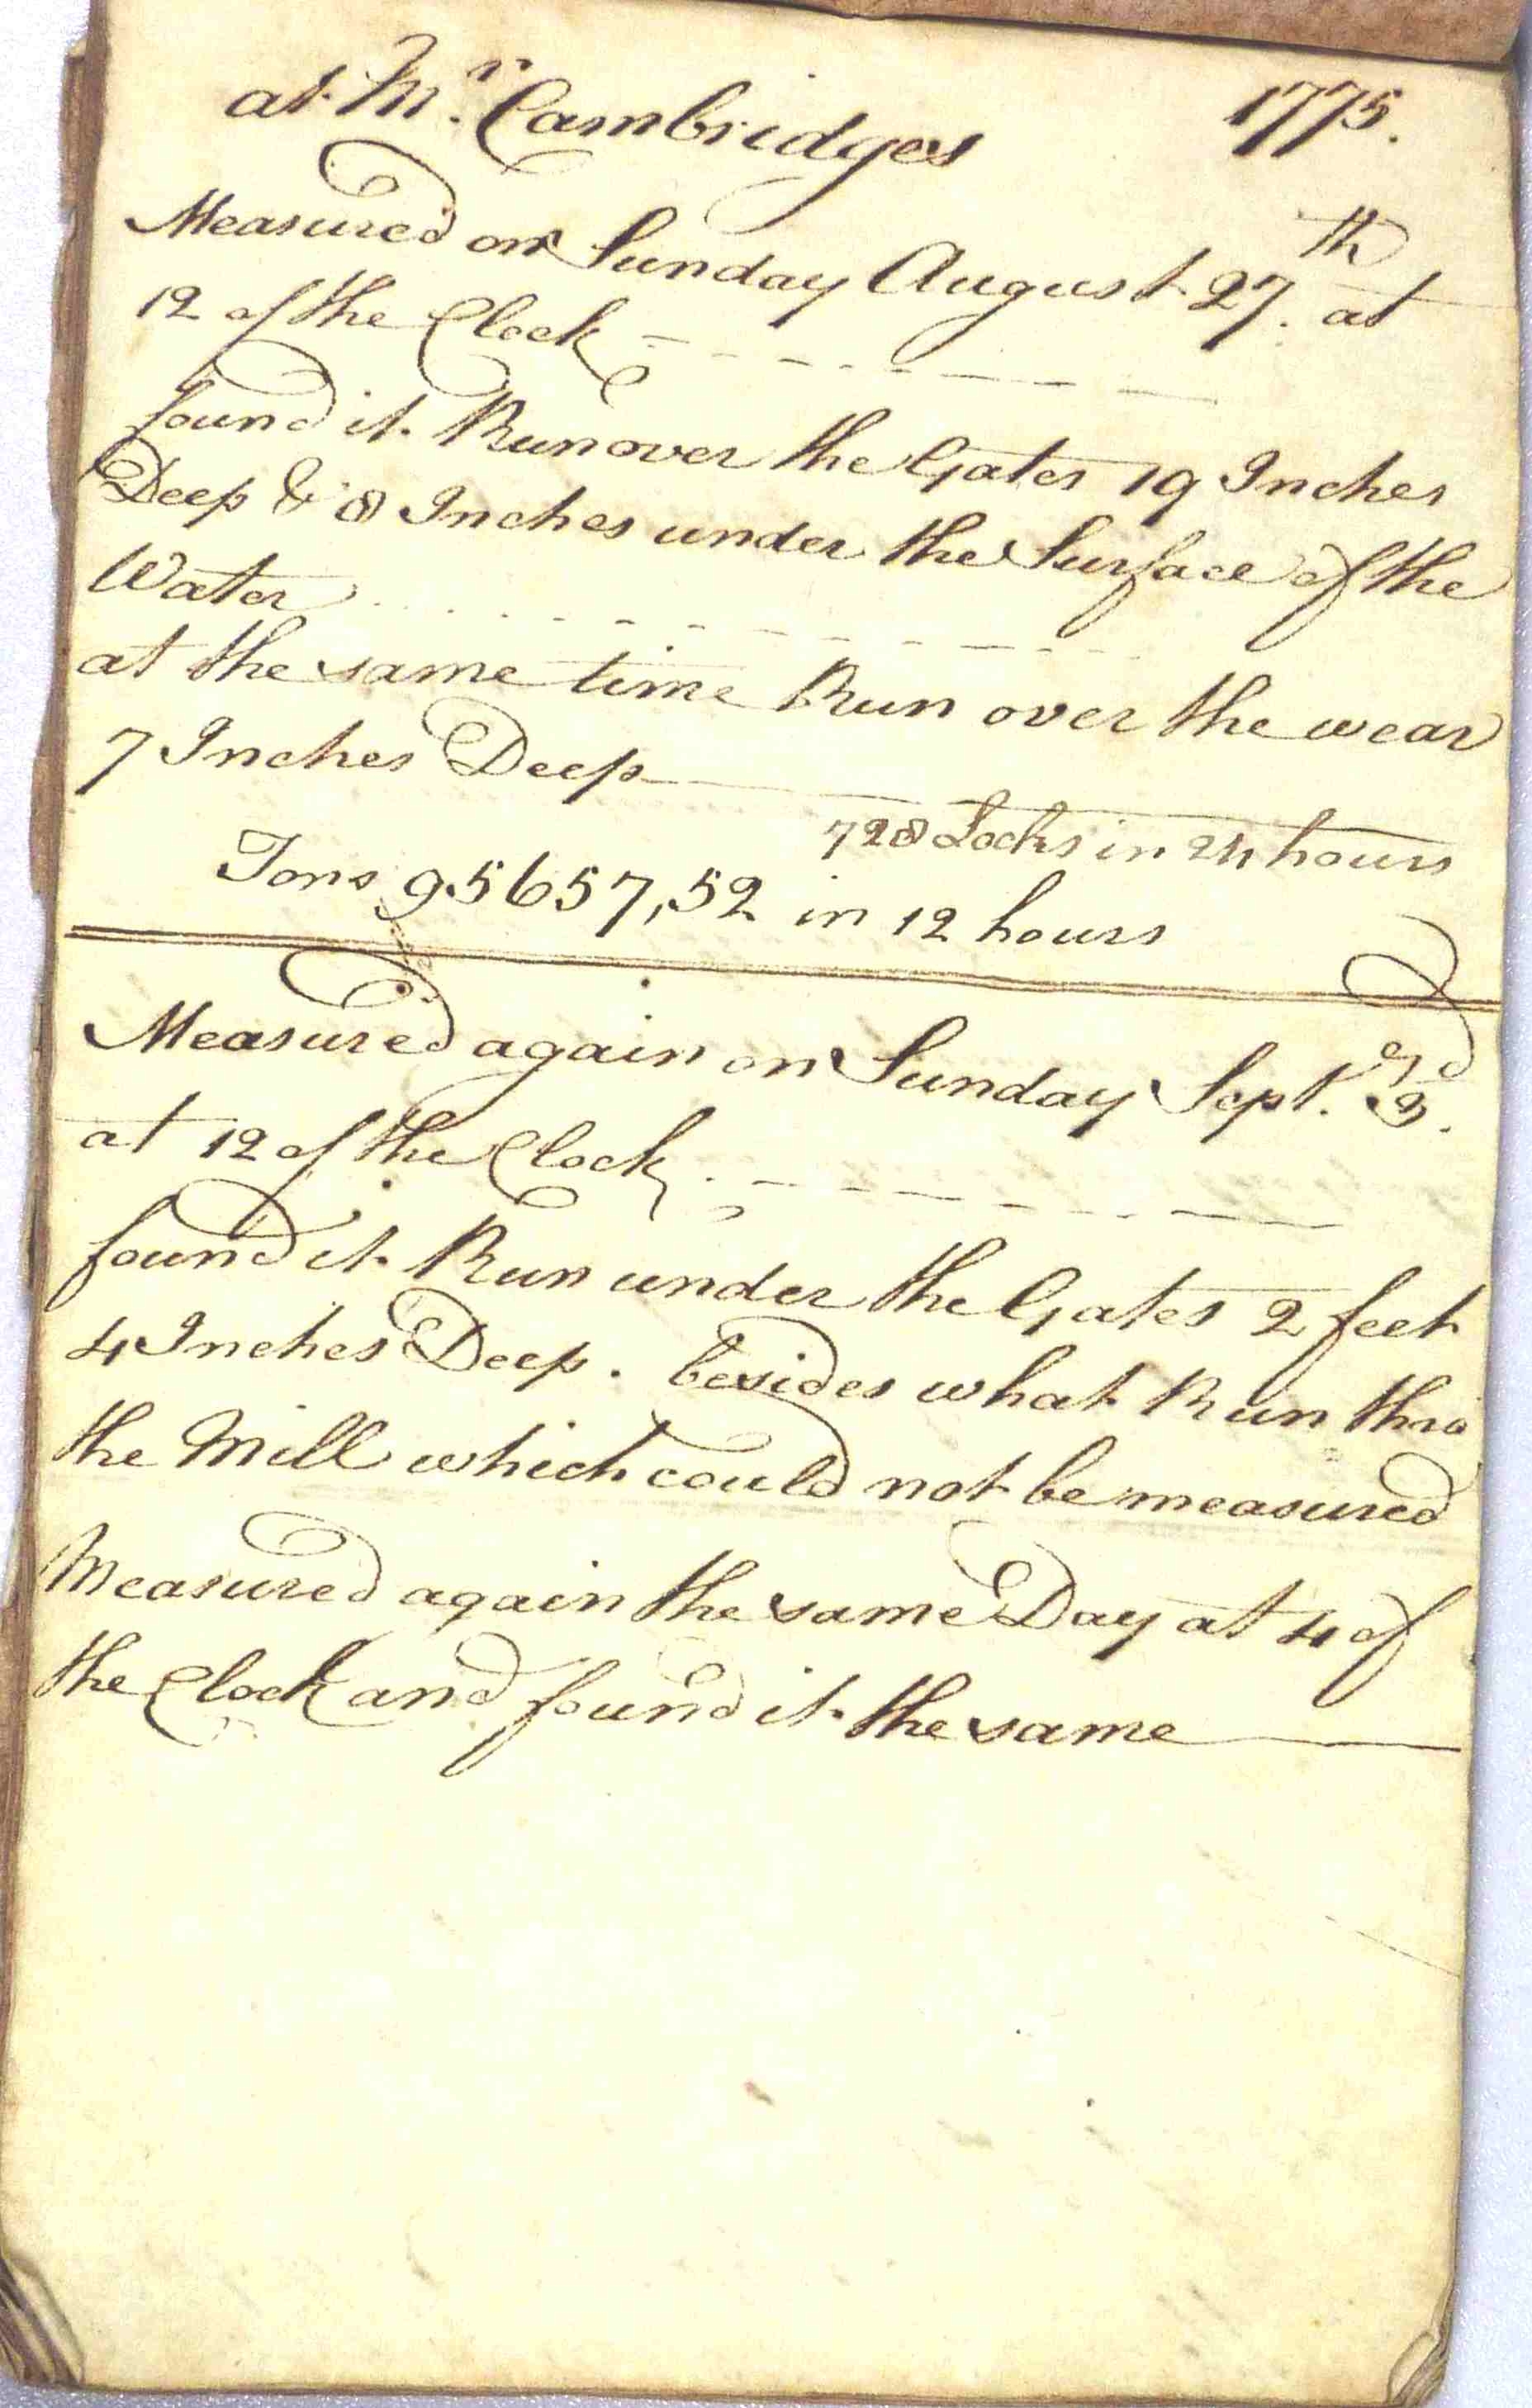 at Mr. Cambridges 1775.
Measured on Sunday August 27.th at
12 of the Clock
found it Run over the Gates 19 Inches
Deep & 8 Inches under the Surface of the
Water
at the same time Run over the wear
7 Inches Deep
728 Locks in 24 hours
Tons 95657,52 in 12 hours
Measured again on Sunday Sept. 3.rd
at 12 of the Clock
found it Run under the Gates 2 feet
4 Inches Deep. besides what Run thro
the Mill which could not be measured
Measured again the same Day at 4 of
the Clock and found it the same